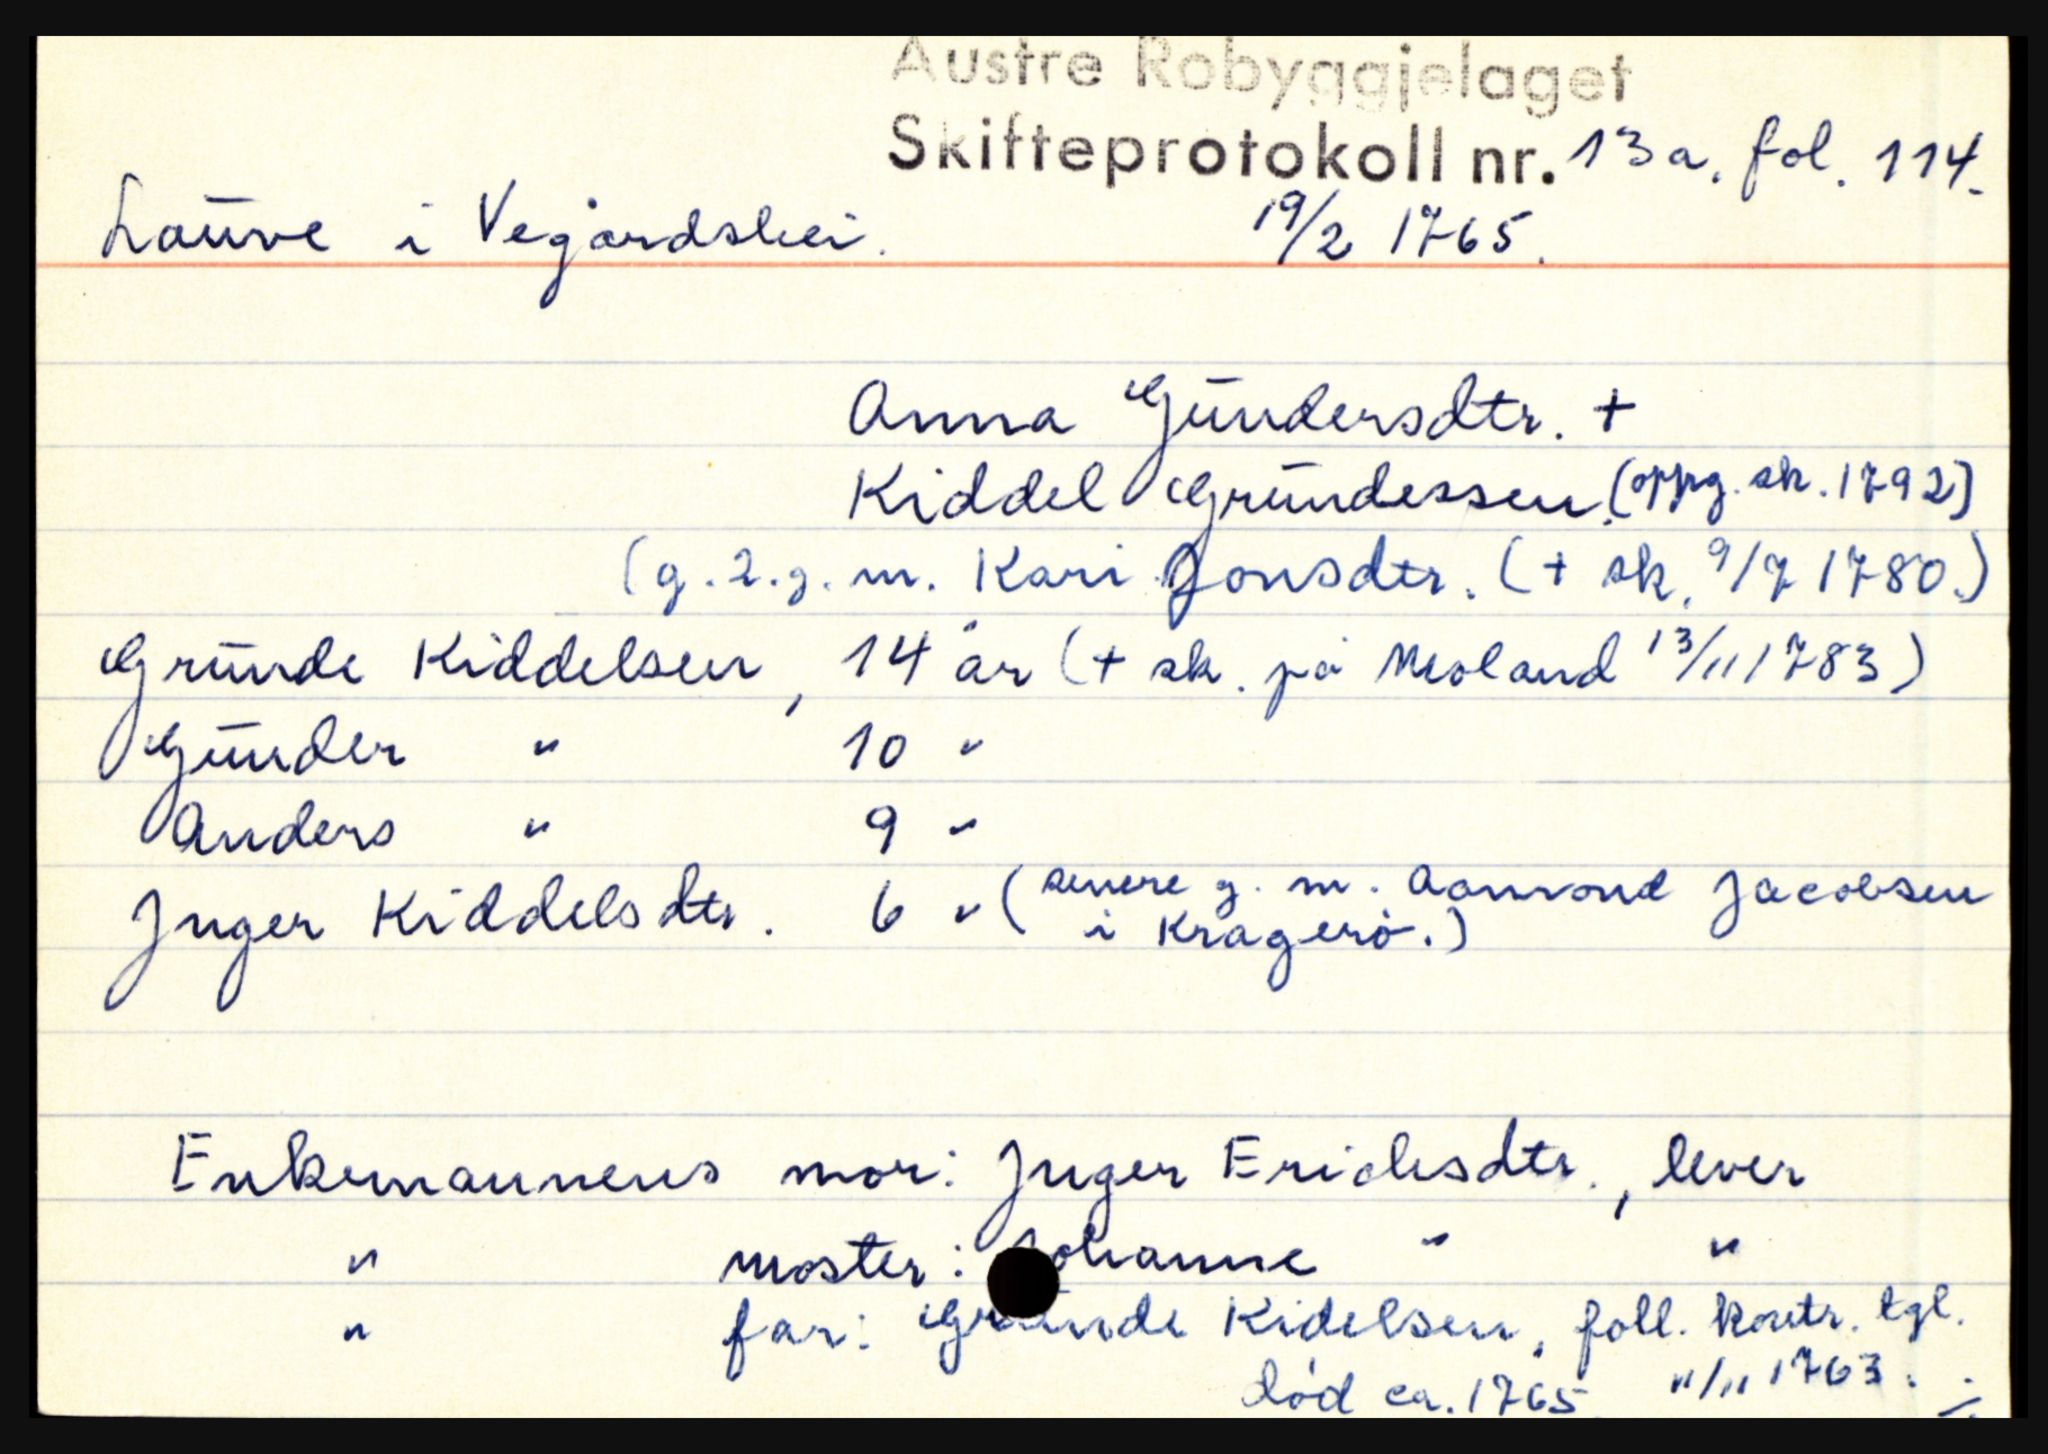 Austre Robyggjelaget
Skifteprotokoll nr. 13a. fol. 114.
Lauve i Vegårdshei. 19/2 1765.
Anna Gundersdtr. +
Kiddel Grundessen. (oppg. sk. 1792)
(g. 2. g. m. Kari Jonsdtr. (+ sk. 9/7 1780.)
Grunde Kiddelsen, 14 år (+ sk. på Moland 13/11 1783)
Gunder " 10 "
Anders " 9 "
Inger Kiddelsdtr. 6 " (senere g. m. Aanvond Jacobsen
i Kragerø.)
Enkemannens mor: Inger Erichsdtr., lever
" moster: Johanne " "
" far: Grunde Kidelsen, foll. kontr. tgl.
død ca. 1765 11/11 1763.